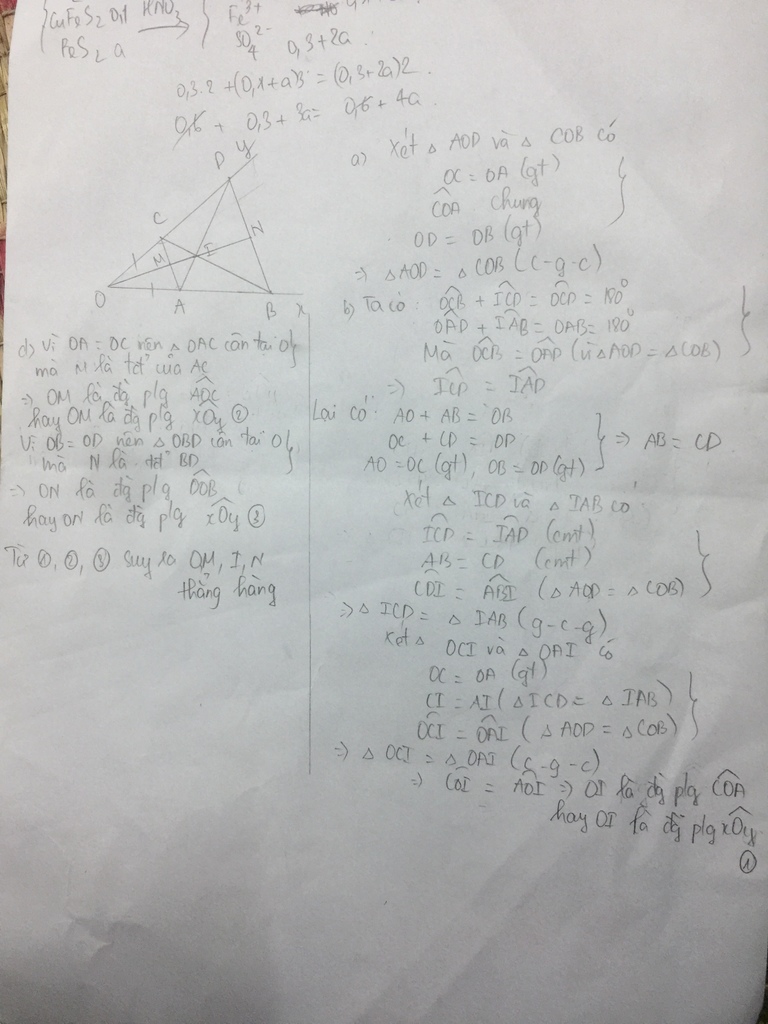 CuFeS2 0,1 HNO3
FeS2 a
Fe3+
SO4 2- 0,3+2a
0,3.2 + (0,1+a)3 = (0,3+2a)2
0,6 + 0,3 + 3a = 0,6 + 4a
D y
C
M I N
O A B x
a) Xét △ AOD và △ COB có
OC = OA (gt)
COA chung
OD = OB (gt)
=> △AOD = △COB (c-g-c)
b) Ta có: OCB + ICD = OCD = 180°
OAD + IAB = OAB = 180°
Mà OCB = OAD (vì △AOD = △COB)
=> ICD = IAD
Lại có: AO + AB = OB
OC + CD = OD => AB = CD
AO = OC (gt), OB = OD (gt)
Xét △ ICD và △ IAB có
ICD = IAD (cmt)
AB = CD (cmt)
CDI = ABI (△ AOD = △ COB)
=> △ ICD = △ IAB (g-c-g)
Xét △ OCI và △ OAI có
OC = OA (gt)
CI = AI (△ICD = △IAB)
OCI = OAI (△AOD = △COB)
=> △ OCI = △ OAI (c-g-c)
=> COI = AOI => OI là đg p/g COA
hay OI là đg p/g xOy
①
d) Vì OA = OC nên △ OAC cân tại O
mà M là tđ' của AC
=> OM là đg p/g AOC
hay OM là đg p/g xOy ②
Vì OB = OD nên △ OBD cân tại O
mà N là tđ' BD
=> ON là đg p/g DOB
hay ON là đg p/g xOy ③
Từ ①, ②, ③ suy ra OM, I, N
thẳng hàng